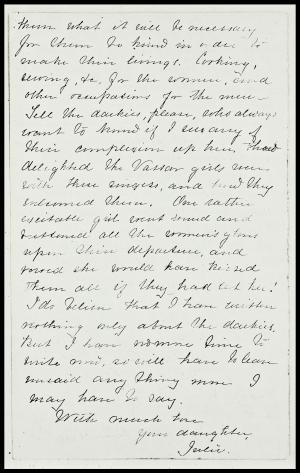 them what it will be necessary
for them to know in order to
make their livings. Cooking,
sewing, &c. for the women, and
other occupations for the men.
Tell the darkies, please, who always
want to know if I see any of
their complexion up here, how
delighted the Vassar girls were
with these singers, and how they
welcomed them. One rather
excitable girl went round and
buttoned all the women's gloves
upon their departure, and
vowed she would have kissed
them all if they had let her!
I do believe that I have written
nothing only about the darkies.
But I have no more time to
write now, so will have to leave
unsaid any thing more I
may have to say.
With much love
Your daughter,
Julie.